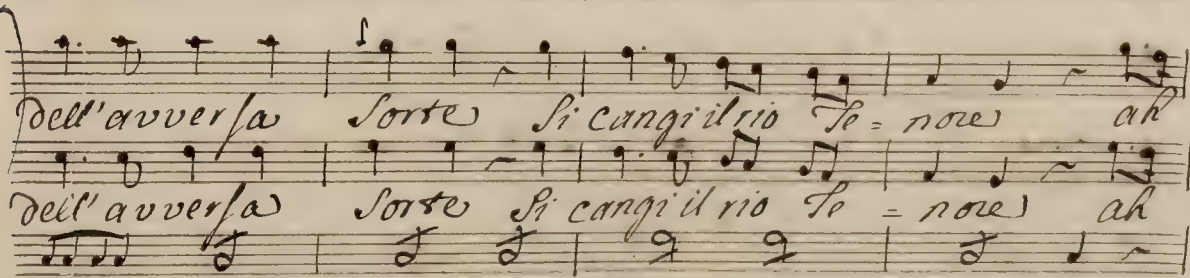 dell'avversa sorte si cangi il rio te = nore ah
dell'avversa sorte si cangi il rio te = nore ah